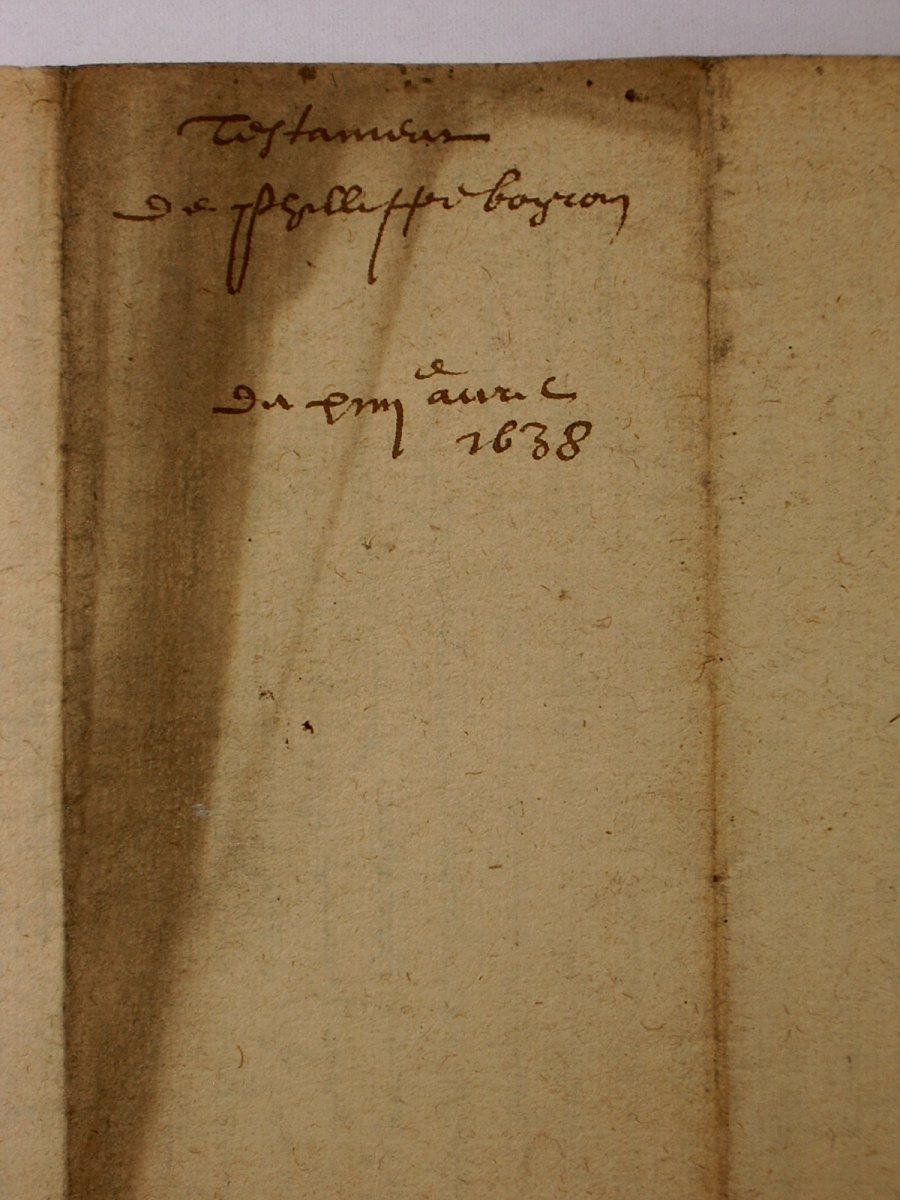 Testament
de Phillippe boyron
du xiiij e avril
1638